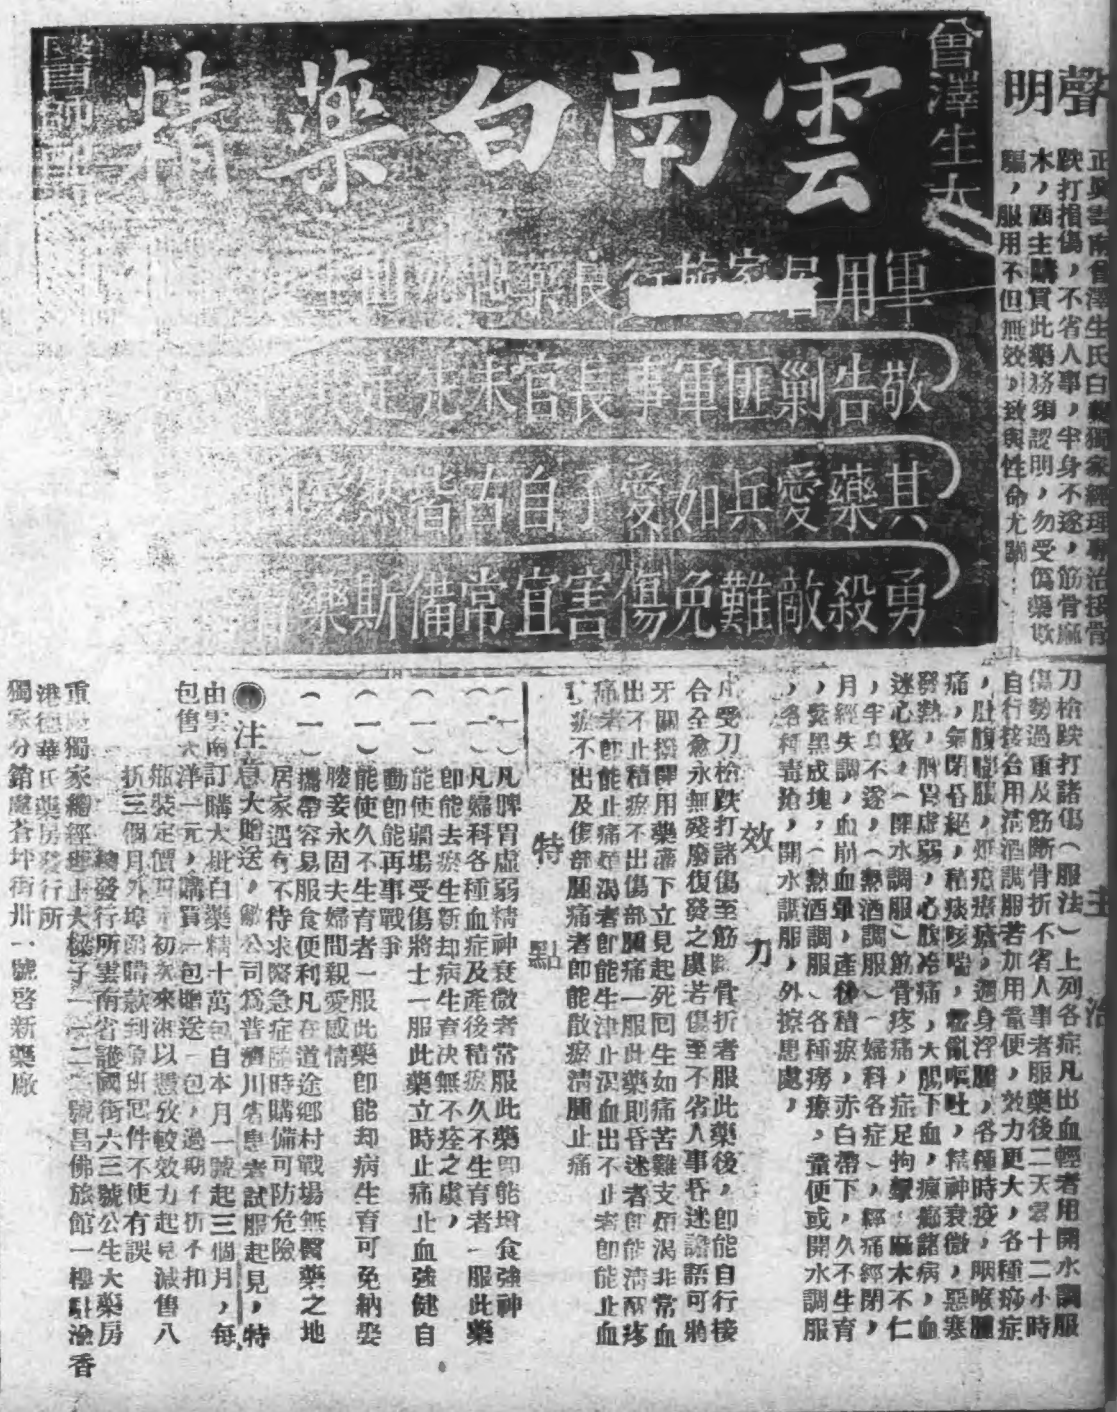 聲明
正 雲南曾澤生氏白 獨家經理專治接骨
跌打損傷，不省人事，半身不遂，筋骨麻
木，顧主購買此藥務須認明，勿受僞藥欺
騙，服用不但無效，致與性命尤關
曾澤生大
雲南白藥精
醫師
軍用居家 行良藥起死
敬告剿匪軍事長官未
其藥愛兵如愛子自古皆然
勇殺敵難免傷害宜常備斯藥
主治
刀槍跌打諸傷（服法）上列各症凡出血輕者用開水調服
傷勢過重及筋斷骨折不省人事者服藥後二天零十二小時
自行接合用清酒調服若加用童便，效力更大，各種痧症
，肚腹膨脹， 瘧， 身浮腫，各種時疫，咽喉腫
痛，氣閉昏絕，積痰咳喘， 亂嘔吐，精神衰微，惡寒
發熱，脾胃虛弱，心腹冷痛，大腸下血，瘋癲諸病，血
迷心竅，（開水調服）筋骨疼痛， 足拘攣，麻木不仁
，半身不遂，（熱酒調服）（婦科各症），經痛經閉，
月經失調，血崩血暈，產後積瘀，赤白帶下，久不生育
， 黑成塊，（熱酒調服）各種癆瘵，童便或開水調服
，各種毒瘡，開水調服，外擦患處，
效力
凡受刀槍跌打諸傷至筋斷骨折者服此藥後，卽能自行接
合全愈永無殘廢復發之虞若傷至不省人事昏迷譫語可將
牙關撬開用藥灌下立見起死回生如痛苦難支煩渴非常血
出不止積瘀不出傷部腫痛一服此藥則昏迷者卽能清醒疼
痛者卽能止痛煩渴者卽能生津止渴血出不止者卽能止血
積瘀不出及傷部腫痛者卽能散瘀清腫止痛
特點
（一）凡脾胃虛弱精神衰微者常服此藥卽能增食強神
（一）凡婦科各種血症及產後積瘀久不生育者一服此藥
卽能去瘀生新却病生育决無不痊之虞，
（一）能使疆場受傷將士一服此藥立時止痛止血強健自
動卽能再事戰爭
（一）能使久不生育者一服此藥卽能却病生育可免納娶
媵妾永固夫婦間親愛感情
（一）攜帶容易服食便利凡在道途鄉村戰場無醫藥之地
居家遇有不待求醫急症隨時購備可防危險
◉注意大贈送，敝公司爲普濟川省患者試服起見，特
由雲南訂購大批白藥精十萬包自本月一號起三個月，每
包售大洋一元，購買一包贈送一包，過期不折不扣
瓶裝定價四元初次來湘以憑攷較效力起見減售八
折三個月外埠 購款到原班寄件不使有誤
總發行所雲南省護國街六三號公生大藥房
重慶獨家總經理上大樑子一一二二號昌佛旅館一樓駐渝香
港德華氏藥房發行所
獨家分銷處蒼坪街卅一號啓新藥廠